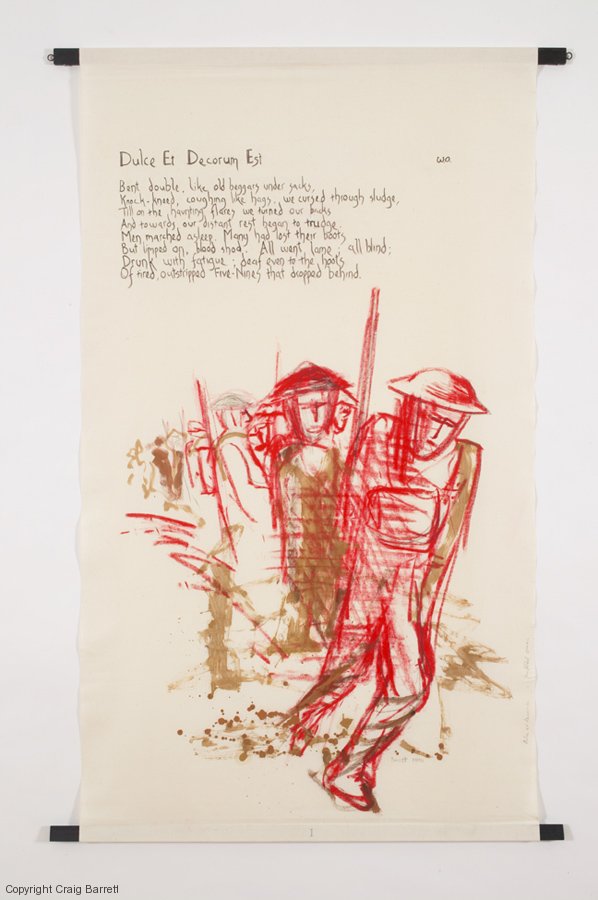 Dulce Et Decorum Est
W.O.
Bent double, like old beggars under sacks,
Knock-kneed, coughing like hags, we cursed through sludge,
Till on the haunting flares we turned our backs
And towards our distant rest began to trudge.
Men marched asleep. Many had lost their boots
But limped on, blood shod. All went lame; all blind;
Drunk with fatigue; deaf even to the hoots
Of tired, outstripped Five-Nines that dropped behind.
I
Copyright Craig Barrett